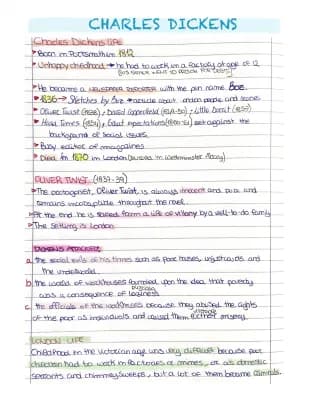 CHARLES DICKENS
Charles Dickens life
Born in Portsmouth in 1812
Unhappy childhood → he had to work in a factory at age of 12
(HIS FATHER WENT TO PRISON FOR DEBTS)
He became a NEWSPAPER REPORTER with the pen name Boz.
1836 → Sketches by Boz → articles about London people and scenes
Oliver Twist (1838), David Copperfield (1849-50), Little Dorrit (1857)
Hard Times (1854), Great Expectations (1860-61) set against the
background of social issues
Busy editor of magazines
Died in 1870 in London (buried in Westminster Abbey)
OLIVER TWIST (1837-39)
The protagonist, Oliver Twist, is always innocent and pure and
remains incorruptible throughout the novel.
At the end he is saved from a life of villany by a well-to-do family
The setting is London
DICKENS ATTACKED
a. the social evils of his times such as poor houses, unjust courts and
the underworld.
b. the world of workhouses founded upon the idea that poverty
was a consequence of laziness
c. the officials of the workhouses because they abused the rights
of the poor as individuals and caused them further misery.
LONDON LIFE
Childhood in the victorian age was very difficult because poor
children had to work in factories or mines, or as domestic
servants and chimney sweeps, but a lot of them became criminals.